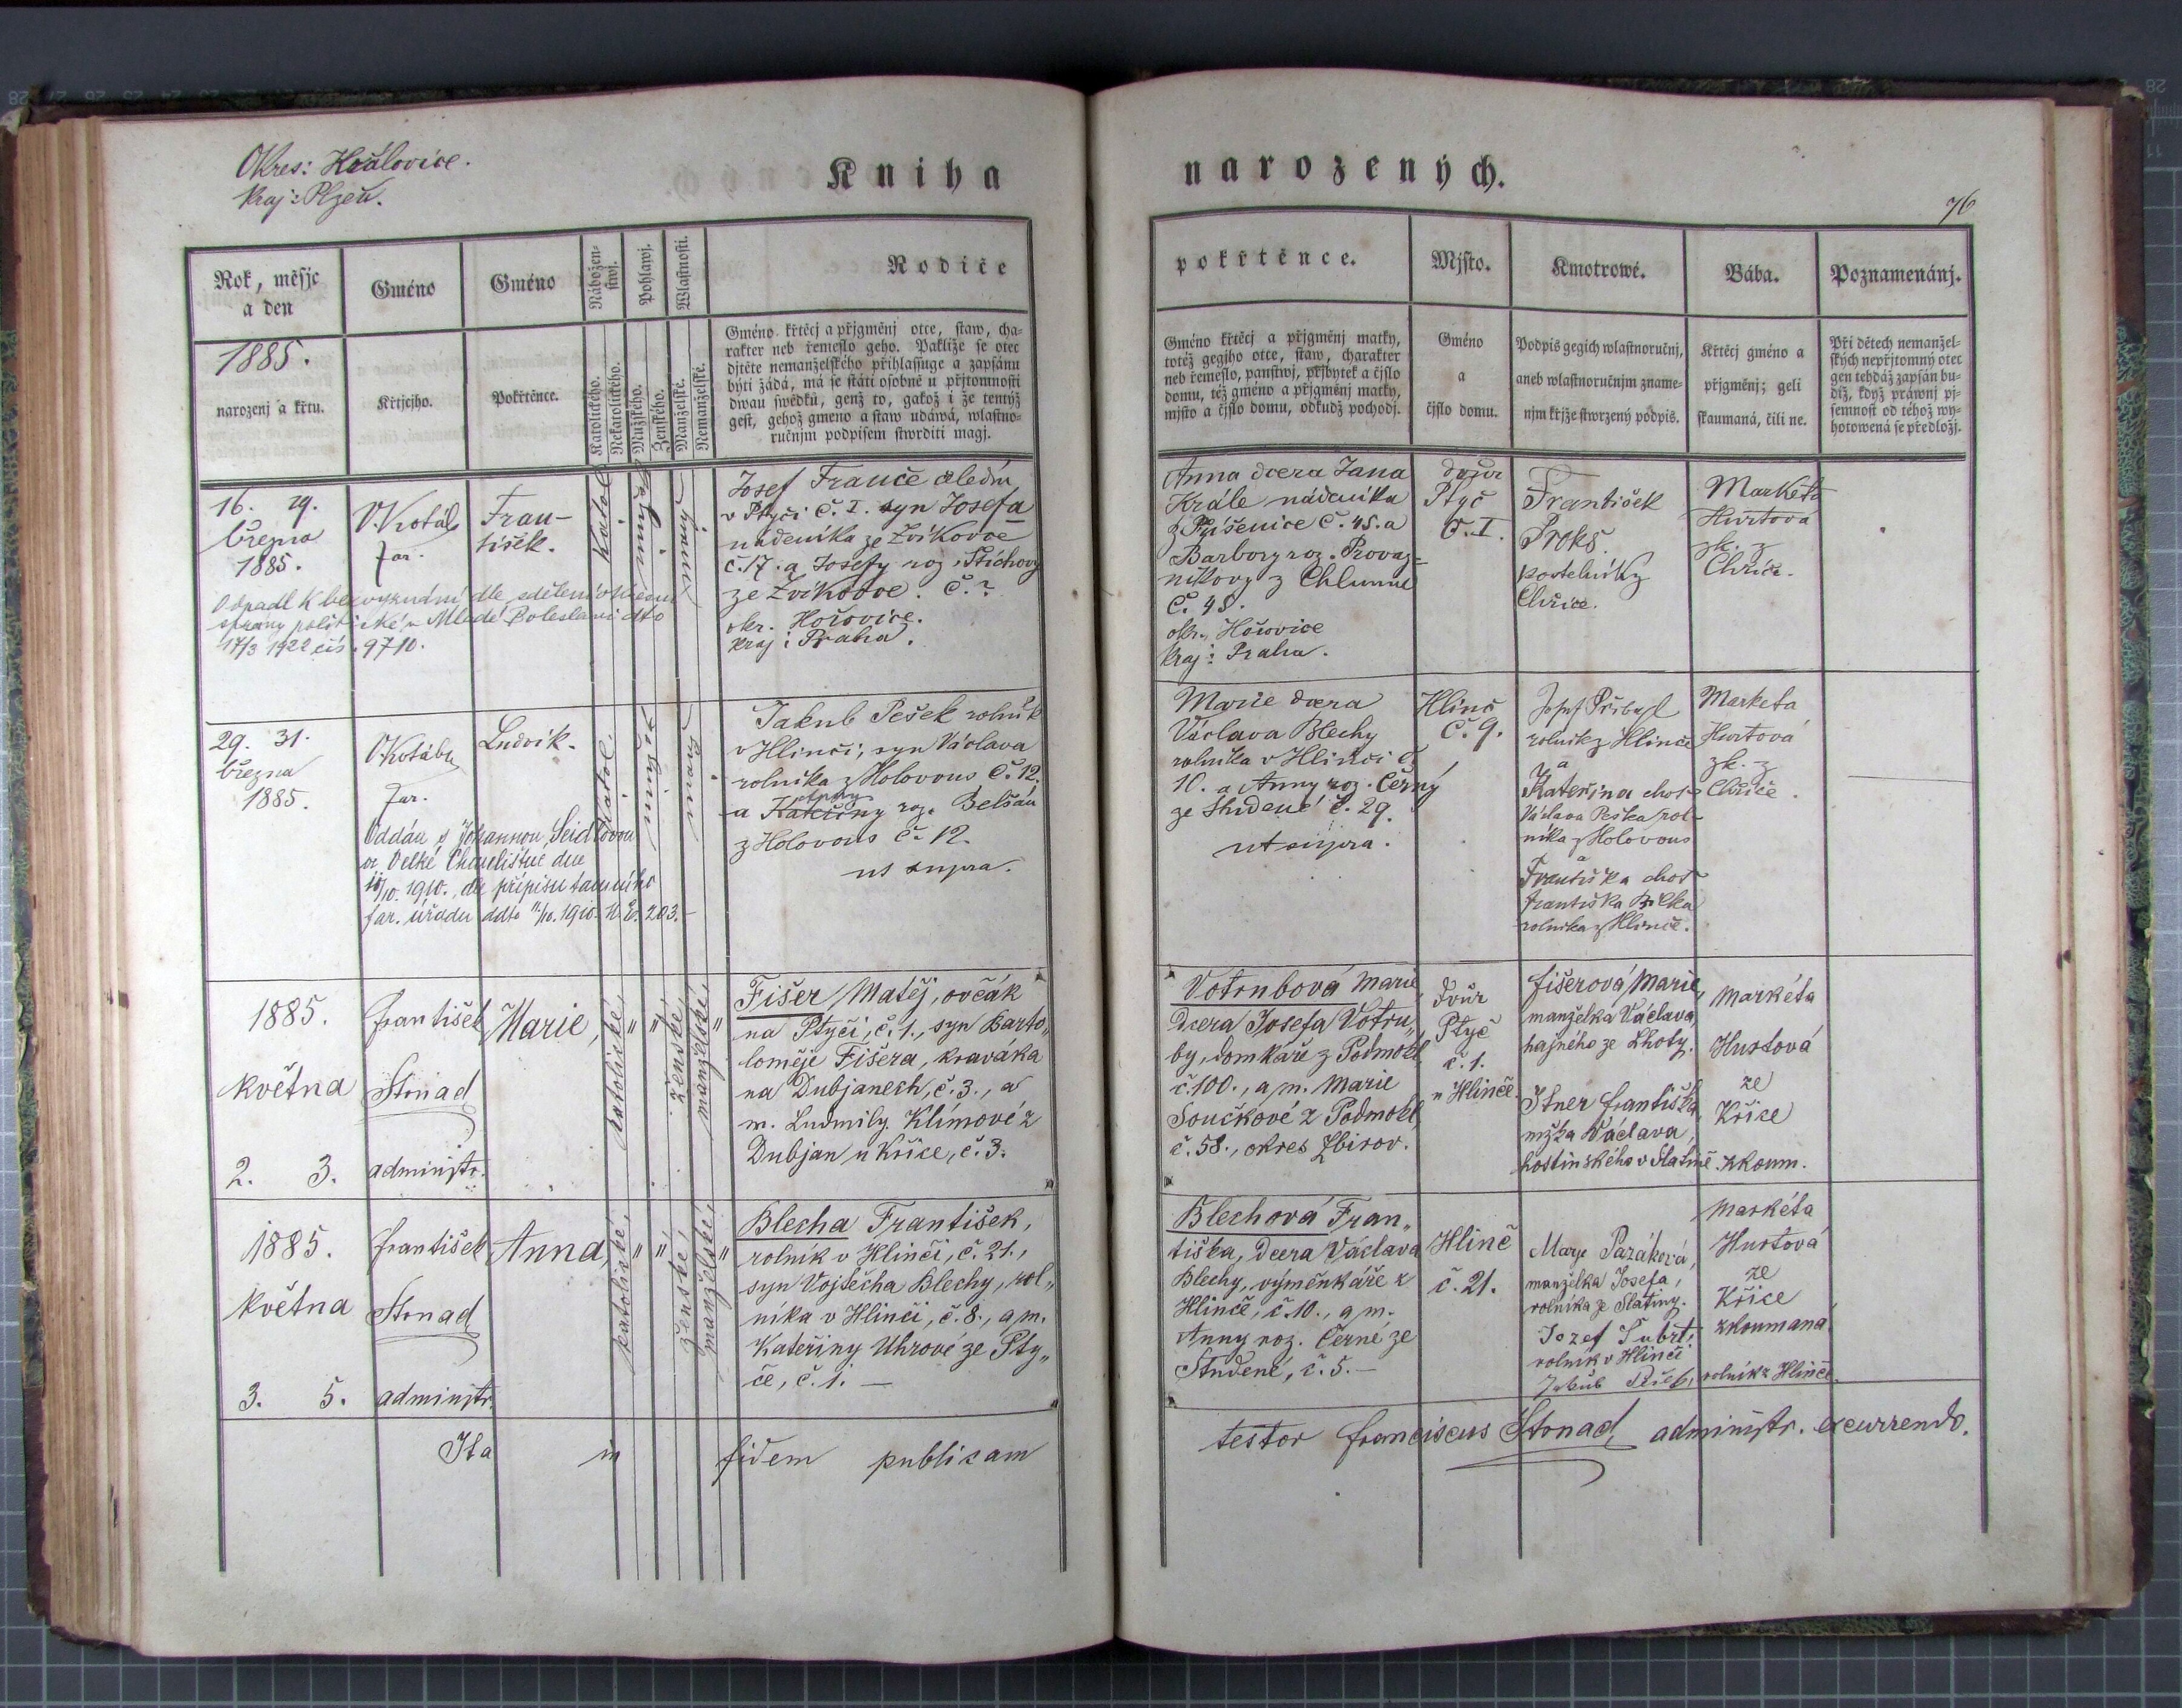 Okres: Kralovice.
Kraj: Plzeň.
Kniha
narozených.
76
Rok, měsjc
a den
1885.
narozenj a křtu.
Gméno
Křtjcjho.
Gméno
Pokřtěnce.
Nábožen-
stwj.
Katolického.
Nekatolického.
Pohlawj.
Mužského.
Ženského.
Wlastnosti.
Manželské.
Nemanželské.
Rodiče
Gméno křtěcj a přjgmenj otce, staw, cha-
rakter neb řemeslo geho. Pakliže se otec
djtěte nemanželského přihlassuge a zapsánu
býti žádá, má se státi osobně u přjtomnosti
dwau swědků, genž to, gakož i že tentýž
gest, gehož gmeno a staw udáwá, wlastno-
ručnjm podpisem stwrditi magj.
pokřtěnce.
Gméno křtěcj a přjgmenj matky,
totéž gegjho otce, staw, charakter
neb řemeslo, panstwj, přjbytek a čjslo
domu, též gméno a přjgmenj matky,
mjsto a čjslo domu, odkudž pochodj.
Mjsto.
Gméno
a
čjslo domu.
Kmotrowé.
Podpis gegich wlastnoručnj,
aneb wlastnoručnjm zname-
njm křjže stwrzený podpis.
Bába.
Křtěcj gméno a
přjgmenj; geli
skaumaná, čili ne.
Poznamenánj.
Při dětech nemanžel-
ských nepřjtomný otec
gen tehdáž zapsán bu-
diž, když práwnj pj-
semnost od téhož wy-
hotowená se předložj.
16. 29.
března
1885.
far.
Fran-
tišek.
Katol.
Josef Franče čeledín
v Ptyči č. I. syn Josefa
nádeníka ze Zvíkovce
č. 17. a Josefy roz.
ze Zvíkovce. č. ?
okr. Hořovice.
kraj: Praha.
Odpadl k bezvyznání dle sdělení okresní
správy politické v Mladé Boleslavi dto
17/3 1922 čís. 9710.
Anna dcera Jana
Krále nádeníka
č. 45. a
Barbory roz. Provaz-
níkovy z Chlumu
č. 48.
okr. Hořovice
kraj: Praha.
dvůr
Ptyč
č. I.
František
Proks
kostelník z
Chříce.
Marketa
Hurtová
zk. z
Chříče.
29. 31.
března
1885.
far.
Ludvík.
Katol.
Jakub Pešek rolník
v Hlinči, syn Václava
rolníka z Holovous č. 12.
a Kateřiny roz.
z Holovous č. 12.
ut supra.
Oddán s Johannou Seidlovou
ve Velké Chmelištné dne
10. 1910., dle přípisu tamního
far. úřadu ddto 11/10. 1910. N. E. 203.
Marie dcera
Václava Blechy
rolníka v Hlinči č.
10. a Anny roz. Černý
ze Studené č. 29.
ut supra.
Hlinč
č. 9.
Josef Přibyl
rolník z Hlinče
a
Kateřina choť
Václava Peška rol-
níka z Holovous
a
Františka choť
Františka
rolníka z Hlinče.
Marketa
Hurtová
zk. z
Chříče.
1885.
května
2. 3.
František
Strnad
administr.
Marie,
katolické, " "
ženské,
manželské, "
Fišer Matěj, ovčák
na Ptyči, č. 1., syn Barto„
loměje Fišera, kraváka
na Dubjanech, č. 3., a
m. Ludmily Klímové z
Dubjan u Křice, č. 3.
Votrubová Marie,
dcera Josefa Votru„
by, domkáře z Podmokl,
č. 100., a m. Marie
Součkové z Podmokl,
č. 58., okres Zbirov.
dvůr
Ptyč
č. 1.
u Hlinče.
Fišerová Marie,
manželka Václava,
hajného ze Lhoty.
Františka,
mžka Václava,
hostinského v Slatině.
Markéta
Hurtová
ze
Křice
zkoum.
1885.
května
3. 5.
František
Strnad
administr.
Anna,
katolické, " "
ženské,
manželské, "
Blecha František,
rolník v Hlinči, č. 21.,
syn Vojtěcha Blechy, rol„
níka v Hlinči, č. 8., a m.
Kateřiny Uhrové ze Pty„
če, č. 1. —
Blechová Fran„
tiška, dcera Václava
Blechy, výměnkáře z
Hlinče, č. 10., a m.
Anny roz. Černé ze
Studené, č. 5. —
Hlinč
č. 21.
Marye Pazáková,
manželka Josefa,
rolníka ze Slatiny.
Jozef Šubrt,
rolník v Hlinči
Jakub Pešek, rolník z Hlinče.
Markéta
Hurtová
ze
Křice
zkoumaná.
Ita in fidem publicam
testor Franciscus Strnad, administr. excurrendo.